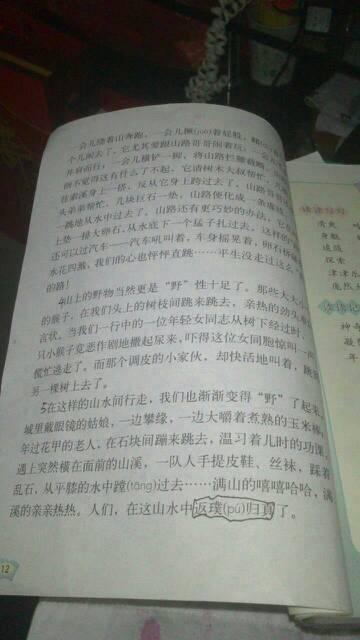 一会儿绕着山奔跑，一会儿撅(juē)着屁股，
个儿闹去了。它尤其爱跟山路哥哥闹着玩：一会儿
并肩而行；一会儿横铲一脚，将山路拦腰截断。山路
倒不觉得这有什么了不起，它请树木大叔帮忙，
往索溪身上一搭，反从它身上跨过去了。山路哥哥
头弟弟帮忙，几块巨石一垫，山路便化成一条虚线，
一跳地从水中过去了。山路还有更巧妙的办法，它在
上垫一排大卵石，从水底下一个猛子扎过去。这样的
还可以过汽车——汽车吼叫着，车身摇晃着，卵石挤碰着，
水花四溅，我们的心也怦怦直跳……平生没走过这么
的路！
4山上的野物当然更是“野”性十足了。那些大大小小
的猴子，在我们头上的树枝间跳来跳去，亲热的劲头
言状。当我们一行中的一位年轻女同志从树下经过时，
只小猴子竟恶作剧地撒起尿来，吓得这位女同胞惊叫一声
慌忙逃走了。而那个调皮的小家伙，却快活地叫着，跳到
另一棵树上去了。
5在这样的山水间行走，我们也渐渐变得“野”了起来。
城里戴眼镜的姑娘，一边攀缘，一边大嚼着煮熟的玉米棒；
年过花甲的老人，在石块间蹦来跳去，温习着儿时的功课。
遇上突然横在面前的山溪，一队人手提皮鞋、丝袜，踩着
乱石，从平膝的水中蹚(tāng)过去……满山的嘻嘻哈哈，满
溪的亲亲热热。人们，在这山水中返璞(pú)归真了。
12
读读写写
清爽
身躯
遮掩
探索
津津乐
庞然大
读读记记
神
凝
年